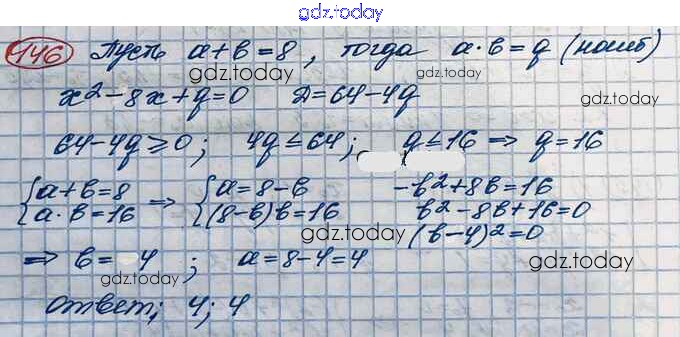 gdz.today
146 Пусть a+b=8, тогда a·b=q (наиб)
gdz.today gdz.today
x²-8x+q=0 D=64-4q
64-4q≥0; 4q≤64; q≤16 ⇒ q=16
{a+b=8 ⇒ {a=8-b -b²+8b=16
{a·b=16 {(8-b)b=16 b²-8b+16=0
gdz.today (b-4)²=0
⇒ b=4; a=8-4=4
gdz.today gdz.today
ответ; 4; 4
gdz.today